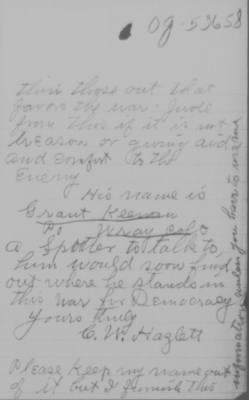 Og-53658
thin those out that
favor thy war. Jude
from this if it is not
treason or giving aid
and comfort to the
Enemy
His name is
Grant Keenan
Po Wray Colo
a Spotter to talk to
him would soon find
out where he stands in
this War for Democracy
Yours truly
C. W. Hazlett
Please Keep my name out
of it but I furnish this
information
you have to